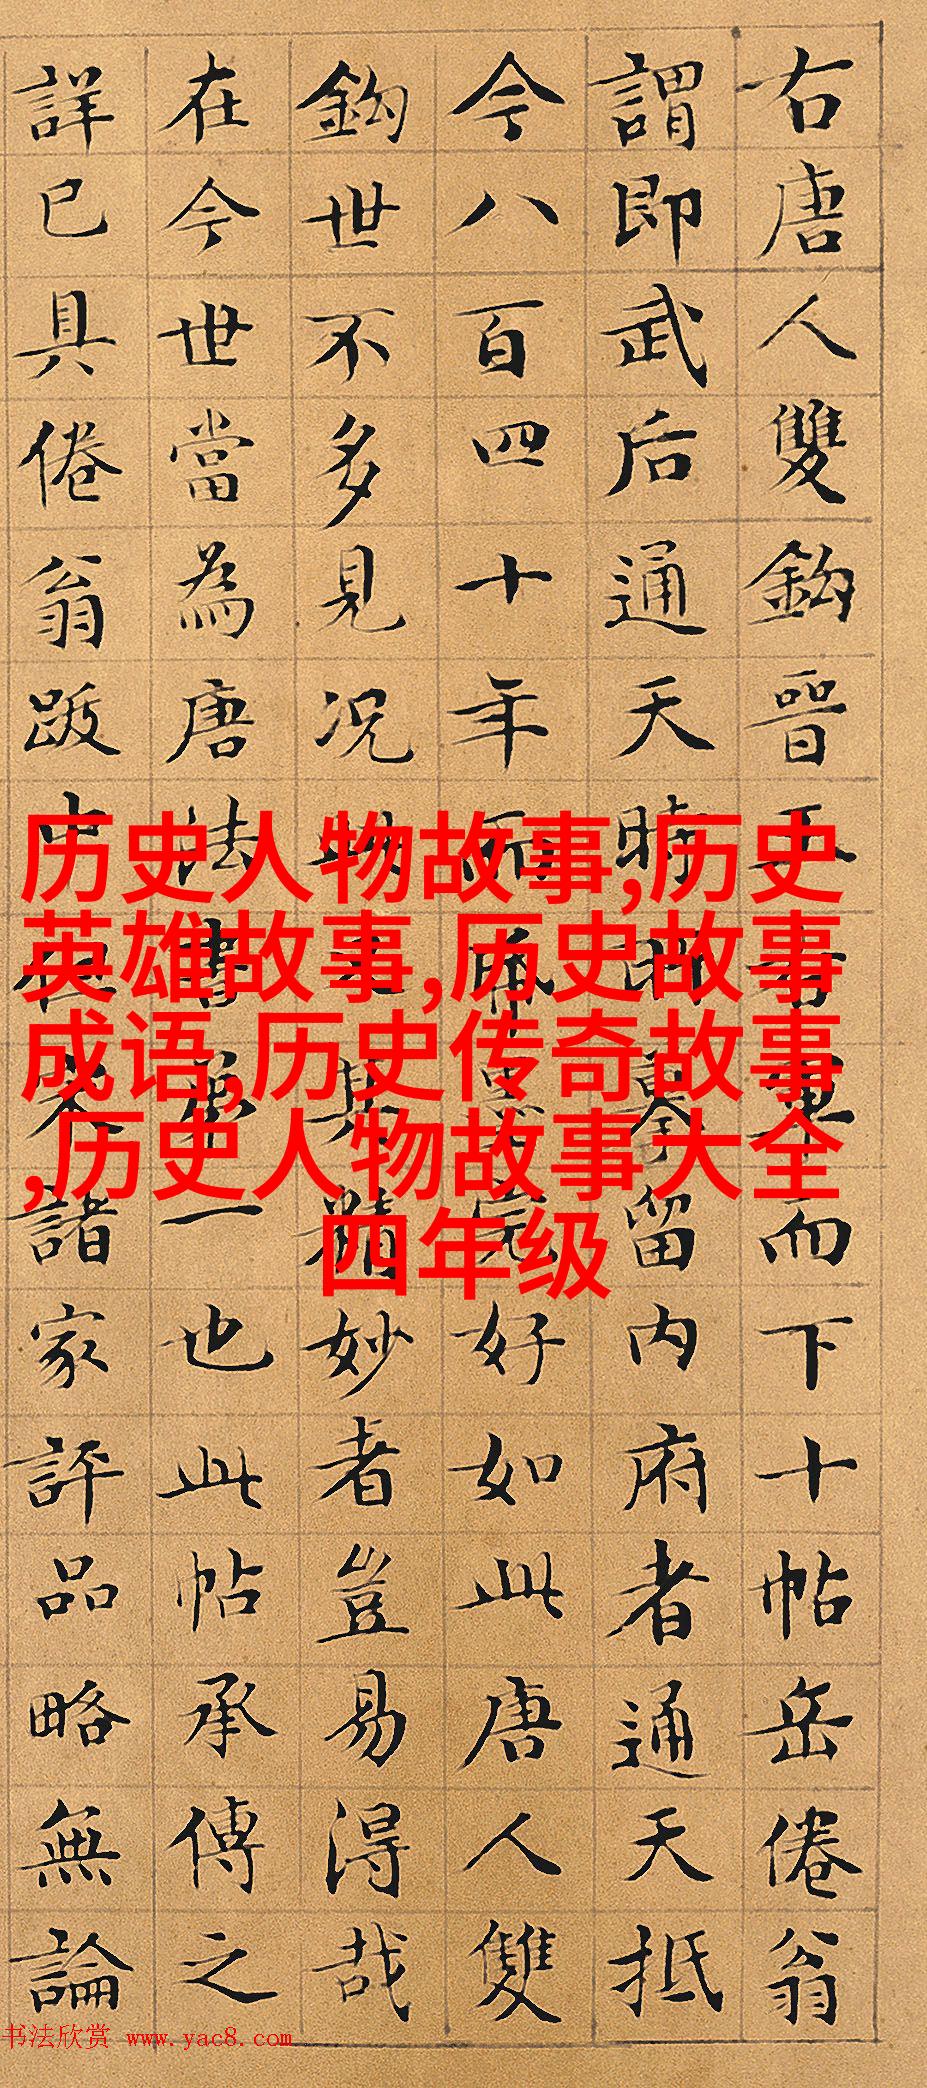 右唐人雙鈎晉王右軍而下十帖岳倦翁
謂即武后通天時所摹留內府者通天抵
今八百四十年而紙墨完好如此唐人雙
鈎世不多見況此其精妙者豈易得哉
在今世當為唐法書第一也此帖承傳之
詳已具倦翁跋中但宋諸家評品略無論
历史人物故事,历史
英雄故事,历史故事
成语,历史传奇故事
,历史人物故事大全
四年级
书法欣赏 www.yac8.com